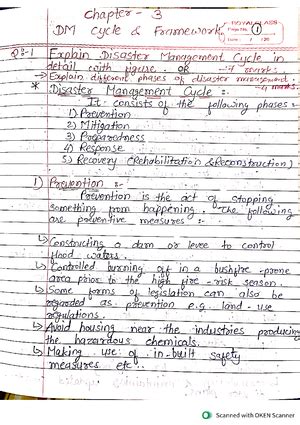 Chapter - 3
DM Cycle & Framework
ROYAL CLASS
Page No. 1
Date: / /20
Q:-1 Explain Disaster Management Cycle in
detail with figure. OR -7 marks.
→ Explain different phases of disaster management.
-4 marks.
* Disaster Management Cycle :-
It consists of the following phases :-
1) Prevention
2) Mitigation
3) Preparedness
4) Response
5) Recovery (Rehabilitation & Reconstruction)
1) Prevention :-
Prevention is the act of stopping
something from happening. The following
are preventive measures :-
↳ Constructing a dam or levee to control
flood waters.
↳ Controlled burning off in a bushfire - prone
area prior to the high fire - risk season.
↳ Some forms of legislation can also be
regarded as prevention e.g. land - use
regulations.
↳ Avoid housing near the industries producing
the hazardous chemicals.
↳ Making use of in-built safety
measures etc..
Scanned with OKEN Scanner